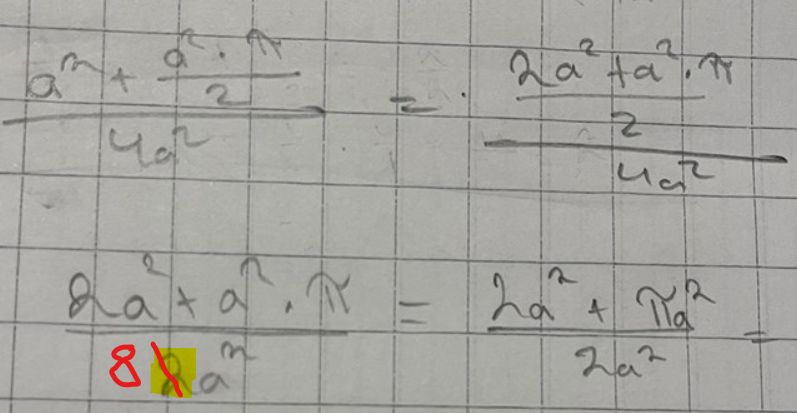 (a² + (a² · π)/2)/(4a²) = ((2a² + a² · π)/2)/(4a²)
(2a² + a² · π)/(8 2a²) = (2a² + πa²)/(2a²) =